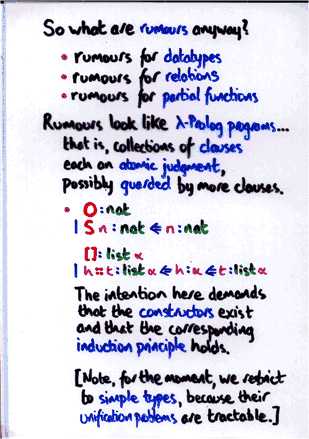 So what are rumours anyway?
• rumours for datatypes
• rumours for relations
• rumours for partial functions
Rumours look like λ-Prolog programs...
that is, collections of clauses
each an atomic judgment,
possibly guarded by more clauses.
• O : nat
| S n : nat ⇐ n : nat
[] : list α
| h :: t : list α ⇐ h : α ⇐ t : list α
The intention here demands
that the constructors exist
and that the corresponding
induction principle holds.
[Note, for the moment, we restrict
to simple types, because their
unification problems are tractable.]